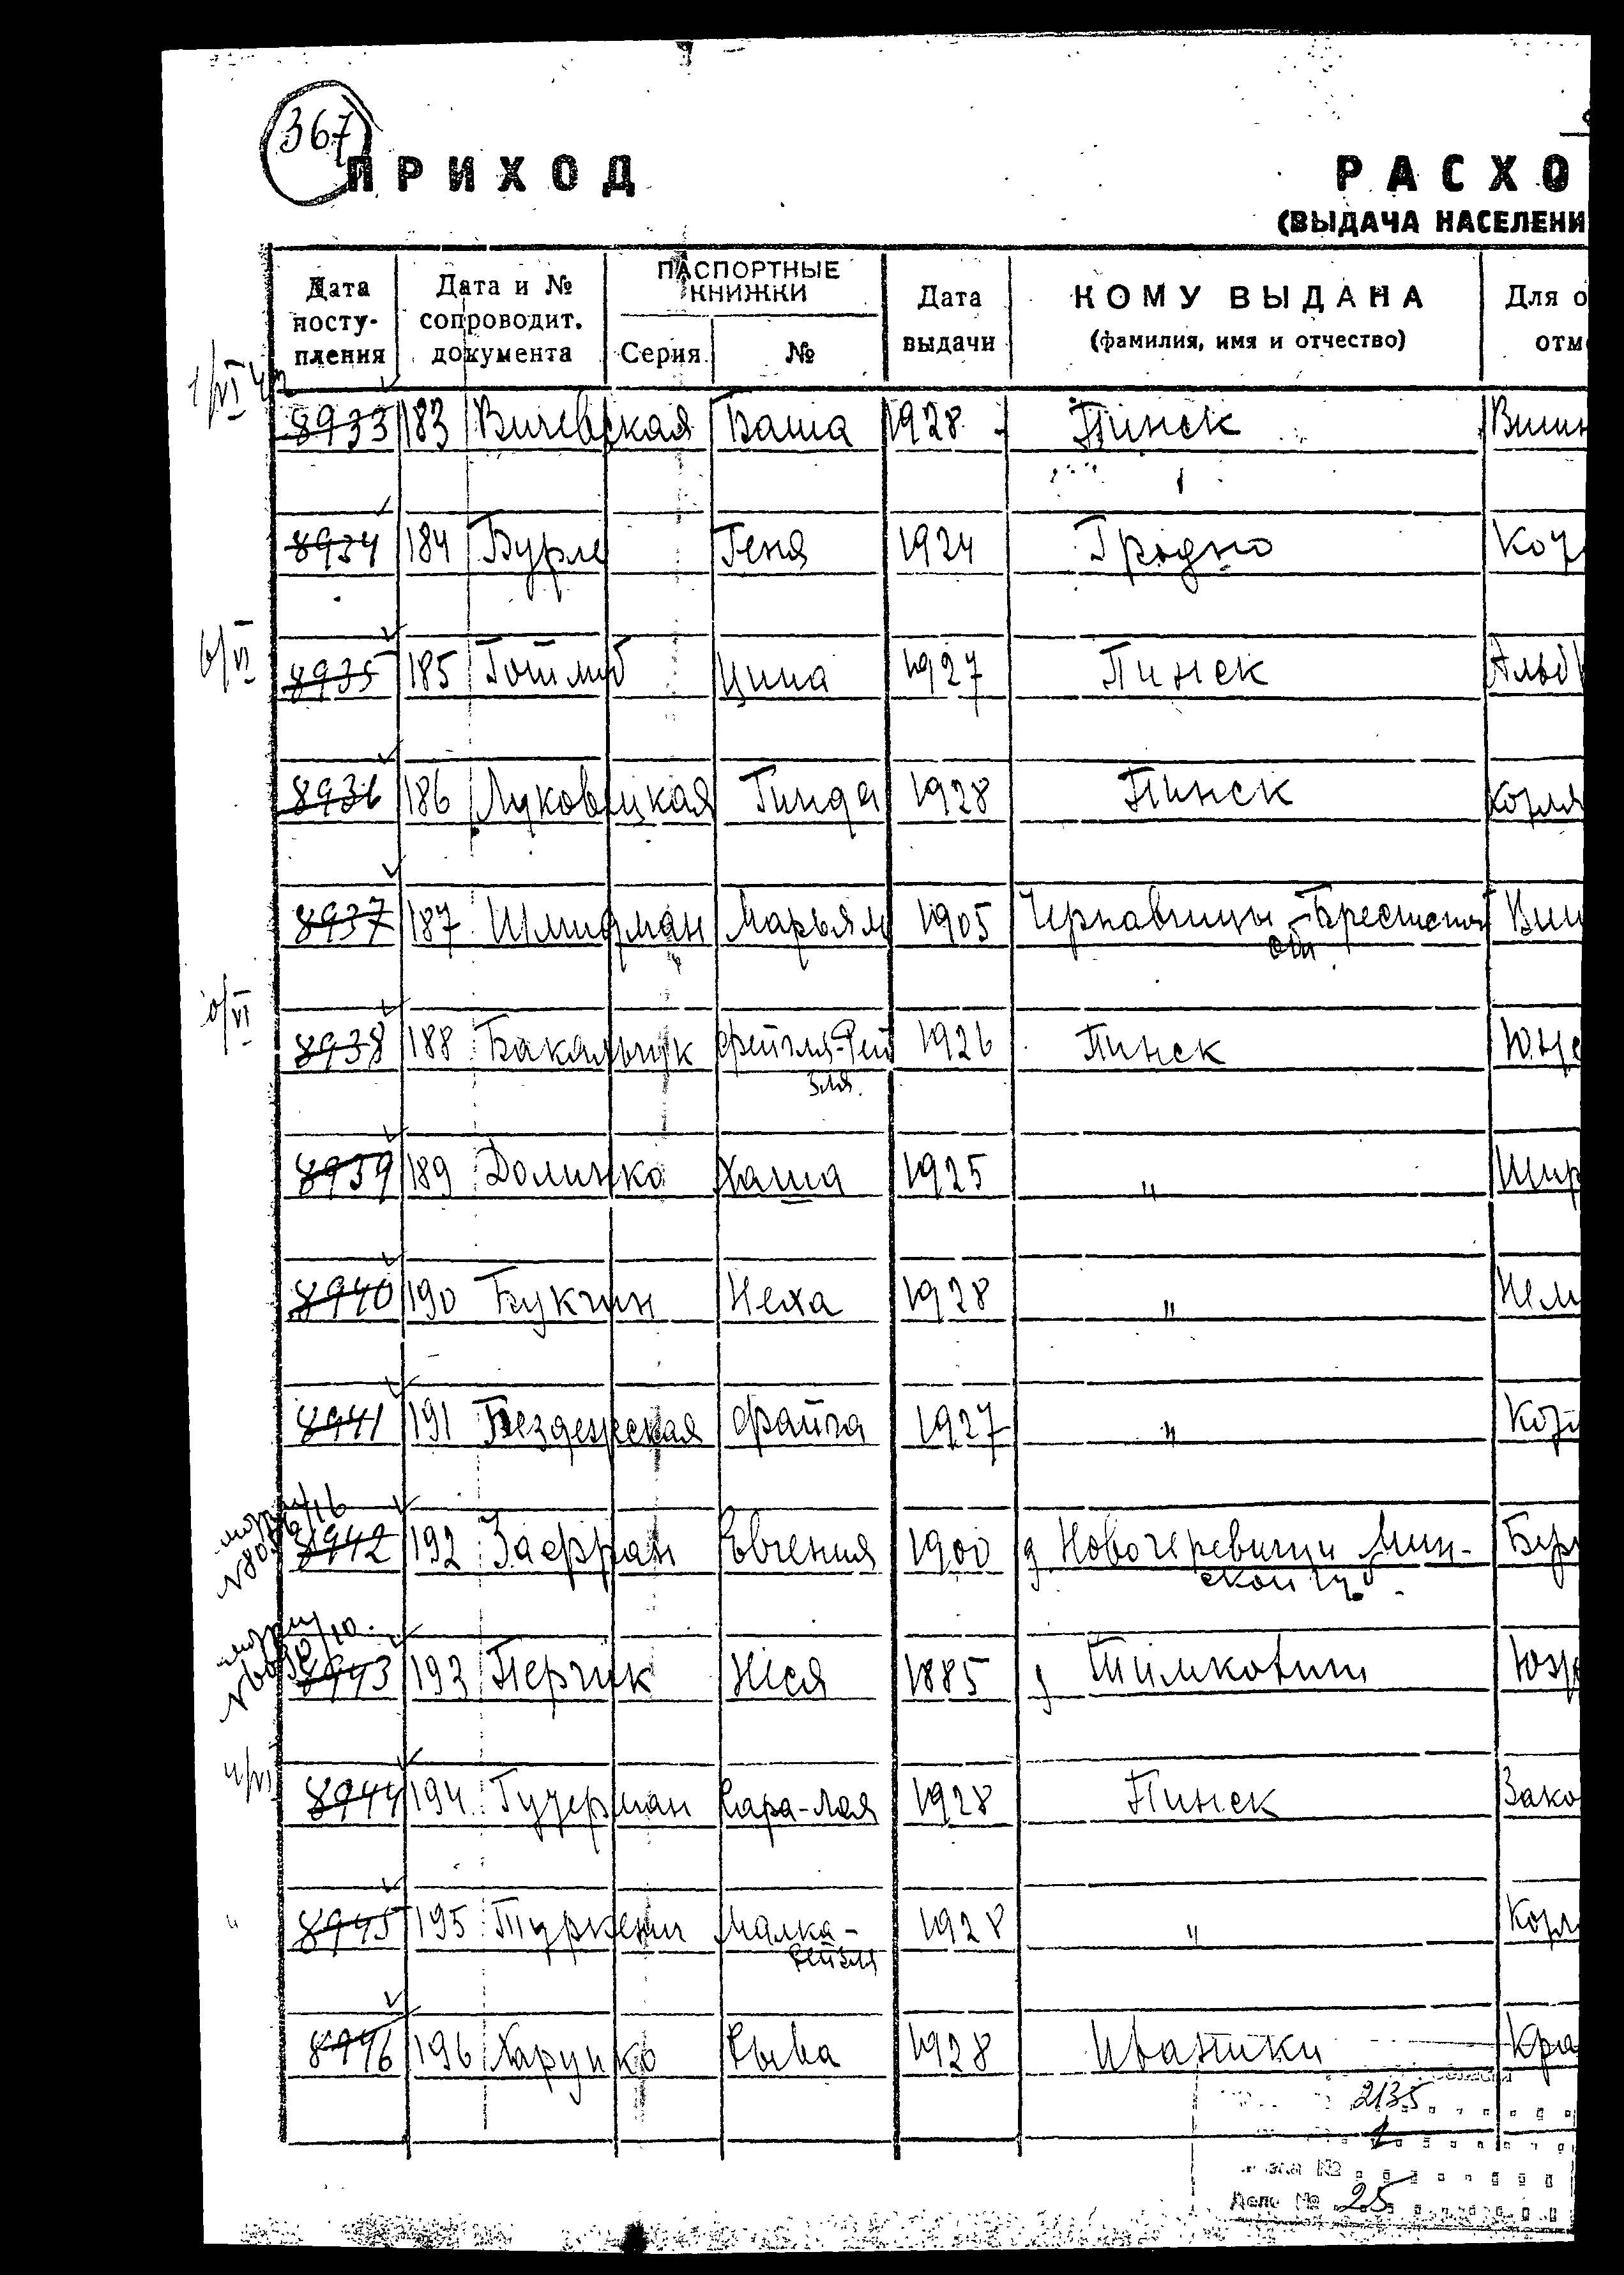 367
ПРИХОД РАСХО
(ВЫДАЧА НАСЕЛЕНИ
Дата поступления Дата и № сопроводит. документа ПАСПОРТНЫЕ КНИЖКИ Серия № Дата выдачи КОМУ ВЫДАНА (фамилия, имя и отчество) Для о отм
8933 183 Вичевская Баша 1928 Пинск
8934 184 Бурле Геня 1924 Гродно
6/VI
8935 185 Готлиб Ципа 1927 Пинск
8936 186 Луковицкая Гинда 1928 Пинск
8937 187 Шлифман Марьям 1905 Чернавчицы Брестской
обл
8938 188 Бакальчук Фейгля-Рей 1926 Пинск
зля
8939 189 Долинко Хаша 1925 "
8940 190 Букчин Неха 1928 "
8941 191 Бездежская Файга 1927 "
8942 192 Заффран Евгения 1900 д Новочеревичи Мин-
ской губ
8943 193 Перчик Нися 1885 д Тимковичи
8944 194 Гузерман Сара-Лея 1928 Пинск Зако
8945 195 Туркенич Малка- 1928 "
Рейзля
8946 196 Харупко Рыва 1928 Иваники Кра
2135
1
Дело № 25